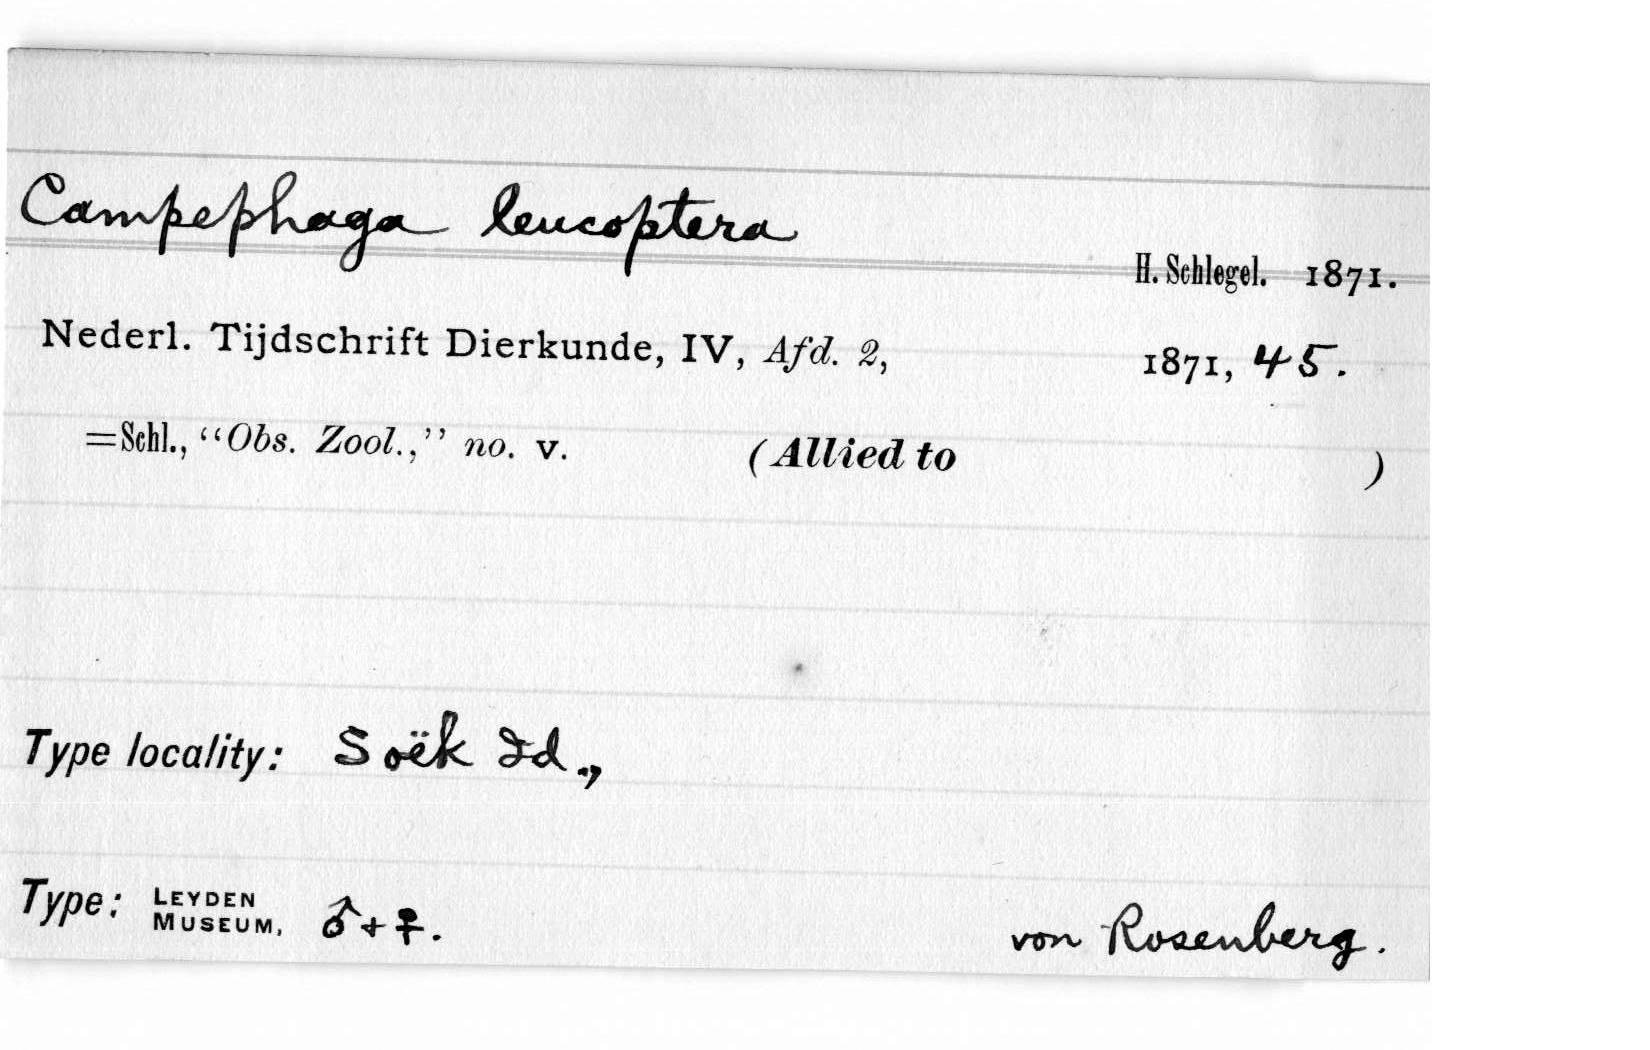 Campephaga leucoptera
H. Schlegel. 1871.
Nederl. Tijdschrift Dierkunde, IV, Afd. 2, 1871, 45.
=Schl., “Obs. Zool.,” no. v. (Allied to )
Type locality: Soëk Id.,
Type: LEYDEN MUSEUM, ♂+♀. von Rosenberg.